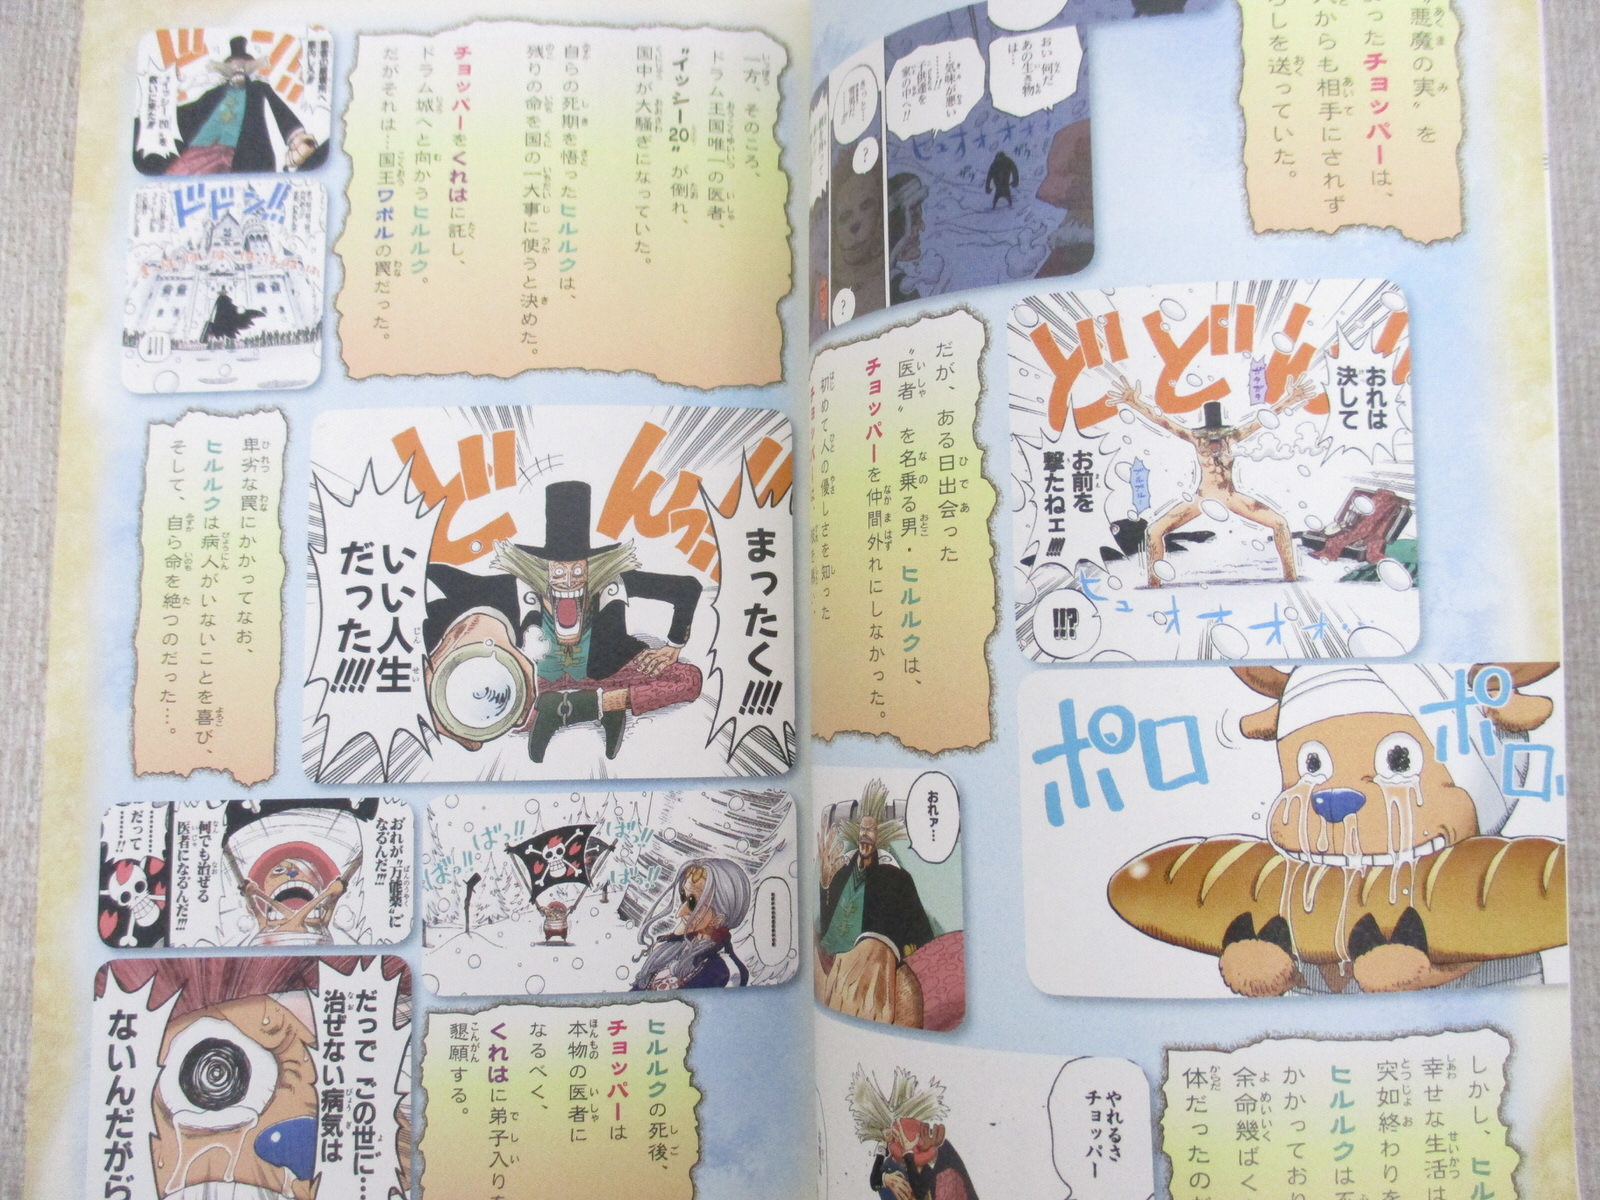 悪魔の実〟を
ったチョッパーは、
からも相手にされず
らしを送っていた。
おい何だ
あの生き物
は…
…気味が悪い
……!!
子供達を
家の中へ!!
?
?
おれは
決して
お前を
撃たねェ!!!!
!!?
ヒュオオオオオ…
だが、ある日出会った
〝医者〟を名乗る男・ヒルルクは、
チョッパーを仲間外れにしなかった。
初めて人の優しさを知った
ポロ
ポロ
おれァ…
やれるさ
チョッパー
しかし、ヒル
幸せな生活は
突如終わりを
ヒルルクは不
かかっており
余命幾ばく
体だったのだ
一方、そのころ、
ドラム王国唯一の医者、
〝イッシー20〟が倒れ、
国中が大騒ぎになっていた。
自らの死期を悟ったヒルルクは、
残りの命を国の一大事に使うと決めた。
チョッパーをくれはに託し、
ドラム城へと向かうヒルルク。
だがそれは…国王ワポルの罠だった。
ドドン!!
どどんっ!!
まったく!!!!
いい人生
だった!!!!
卑劣な罠にかかってなお、
ヒルルクは病人がいないことを喜び、
そして、自ら命を絶つのだった…。
ばっ!!
ばっ!!
ばっ!!
ばっ!!
おれが〝万能薬〟に
なるんだ!!!
何でも治せる
医者になるんだ!!!
だって
………!!
だって この世に…
治ぜない病気は
ないんだがら
ヒルルクの死後、
チョッパーは
本物の医者に
なるべく、
くれはに弟子入りを
懇願する。